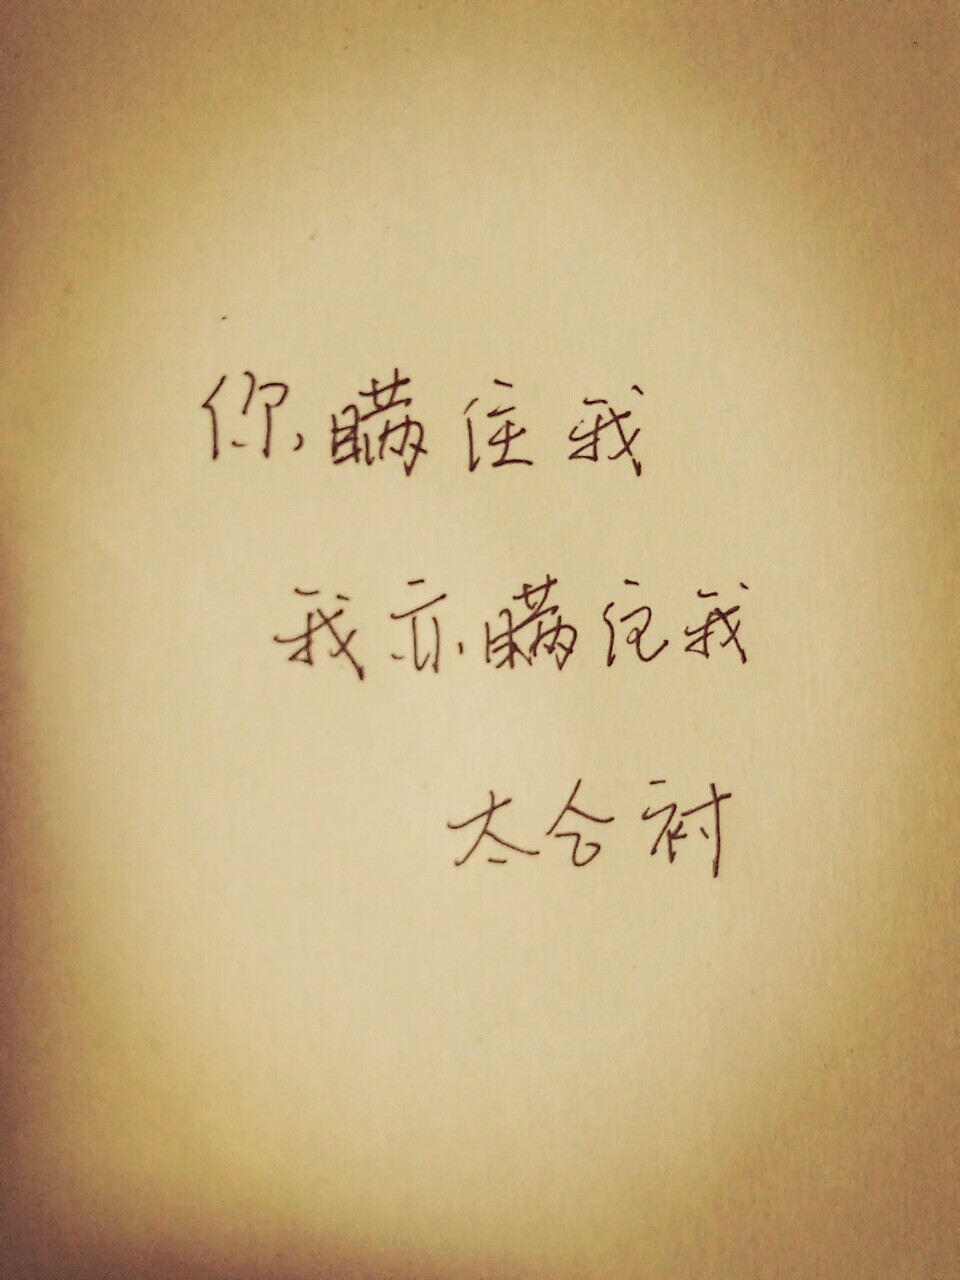 你瞒住我
我亦瞒住我
太合衬